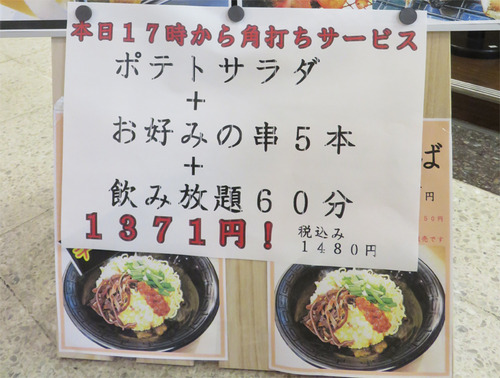 本日17時から角打ちサービス
ポテトサラダ
+
お好みの串5本
+
飲み放題60分
1371円!
税込み
1480円
ば
円